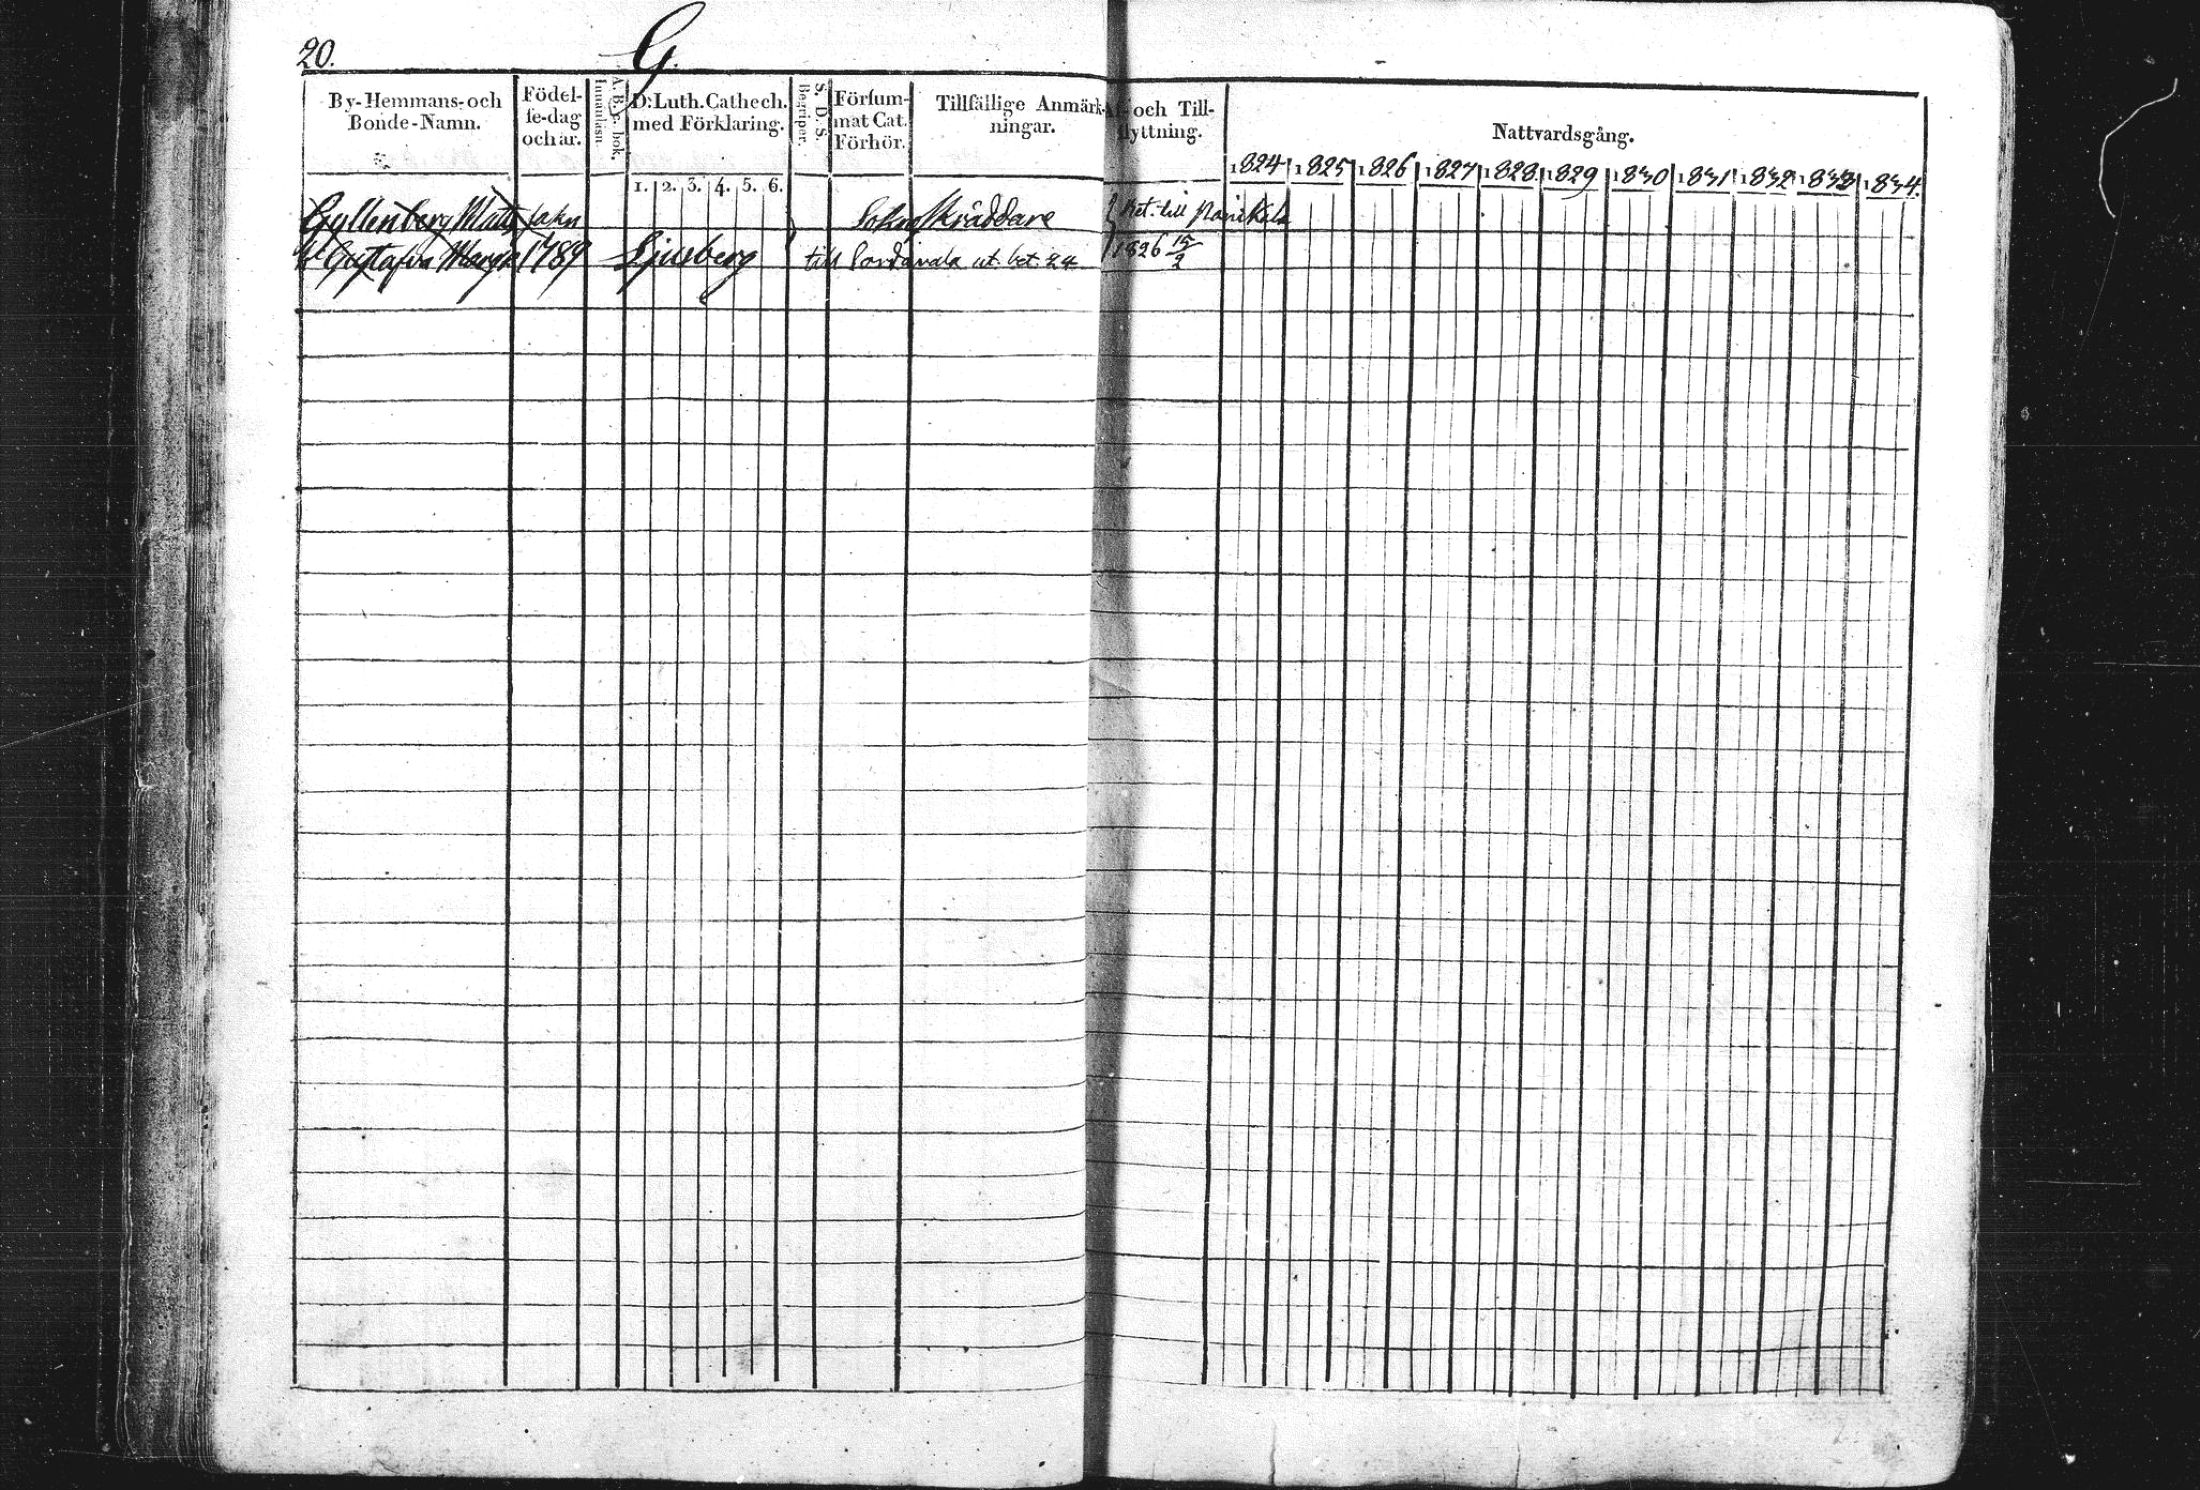 20.
G.
By-Hemmans- och
Bonde-Namn.
Födel-
se-dag
och år.
A. B. c. bok.
Innantläsn.
D: Luth. Cathech.
med Förklaring.
1. 2. 3. 4. 5. 6.
S. D. S.
Begriper.
Försum-
mat Cat.
Förhör.
Tillfällige Anmärk-
ningar.
Af- och Till-
flyttning.
Nattvardsgång.
1824 1825 1826 1827 1828 1829 1830 1831 1832 1833 1834.
Gyllenberg Matts Sokn Skräddare Bet. till
h. Gustafva Marg. 1789 Ljusberg till Sordavala ut. bet. 24 1826 15/2